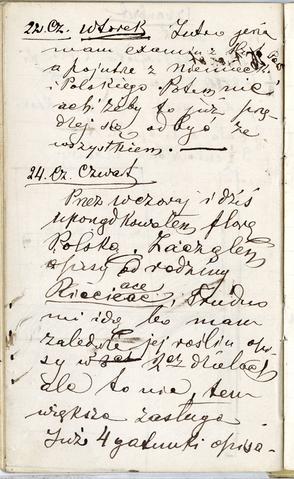 22. Cz. Wtorek Jutro jeśli
mam examin z
a pojutrze z Niemiec
i Polskiego Potem nic
ach! żeby to już prę
dzej się odbyć ze
wszystkiem.
24. Cz. Czwart
Przez wczoraj i dziś
uporządkowałem florę
Polską. Zacząłem
opisy od rodziny
, trudno
mi idę bo mam
zaledwie jej roślin opi
sy w
ale to nic, tem
większa zasługa
Już 4 gatunki opisa-